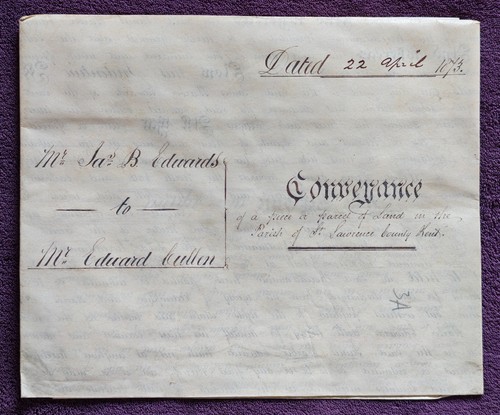 Dated 22 April 1873.
Mr. Jas. B Edwards
to
Mr. Edward Cullen
Conveyance
of a piece or parcel of Land in the
Parish of St. Lawrence County Kent.
3A